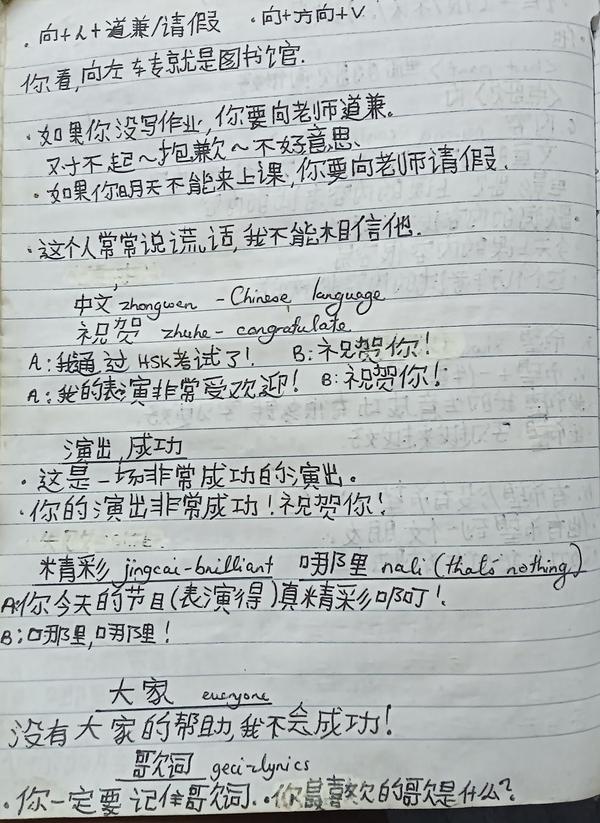 · 向+人+道兼/请假 · 向+方向+V
你看,向左转就是图书馆.
· 如果你没写作业,你要向老师道兼。
对不起~抱歉~不好意思、
· 如果你明天不能来上课,你要向老师请假.
· 这个人常常说谎话,我不能相信他.
中文 zhongwen - Chinese language
祝贺 zhuhe - congratulate
A:我通过HSK考试了! B:祝贺你!
A:我的表演非常受欢迎! B:祝贺你!
演出,成功
· 这是一场非常成功的演出。
· 你的演出非常成功!祝贺你!
精彩 jingcai-brilliant 哪里 nali (that's nothing)
A:你今天的节目(表演得)真精彩啊!
B:哪里,哪里!
大家 everyone
没有大家的帮助,我不会成功!
歌词 geci-lyrics
· 你一定要记住歌词. · 你最喜欢的歌是什么?